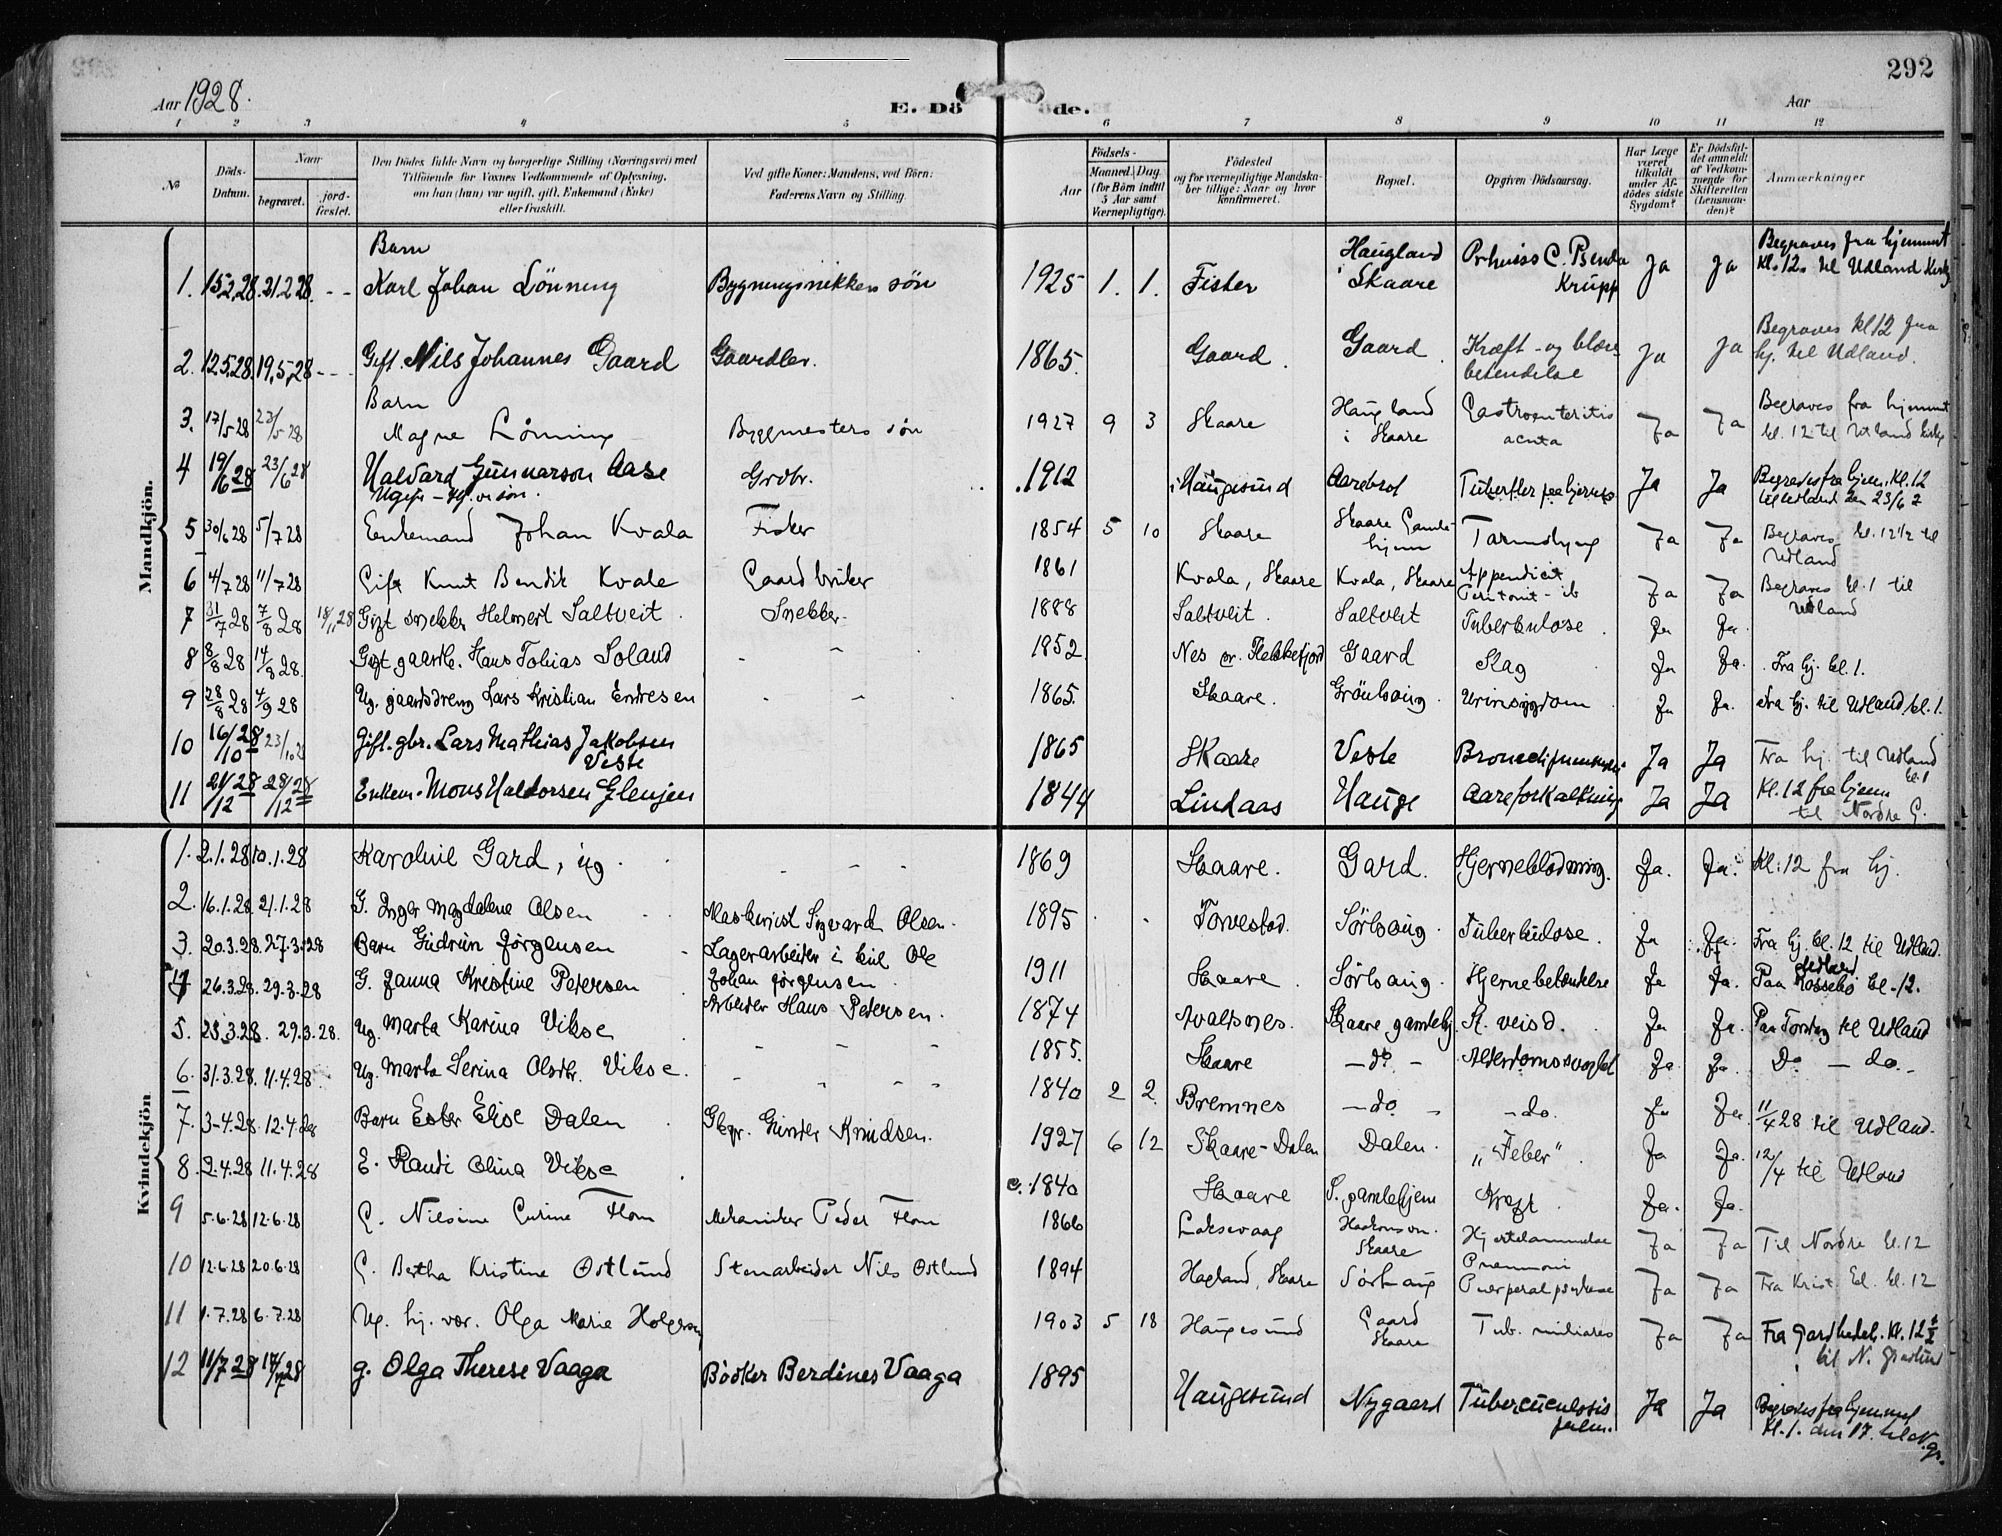 292
Aar 1928.
E. Dö
öde.
Aar
1 2 3 4 5 6 7 8 9 10 11 12
No
Döds-Datum.
Naar
begravet.
jord-fæstet.
Den Dödes fulde Navn og borgerlige Stilling (Næringsvei) med
Tilföiende for Voxnes Vedkommende af Oplysning,
om han (hun) var ugift, gift, Enkemand (Enke)
eller fraskilt.
Ved gifte Koner: Mandens, ved Börn:
Faderens Navn og Stilling.
Födsels-
Aar
Maaned. Dag.
(for Börn indtil
5 Aar samt
Værnepligtige).
Födested
og for værnepligtige Mandska-
ber tillige: Naar og hvor
konfirmeret.
Bopæl.
Opgiven Dödsaarsag.
Har Læge
været
tilkaldt
under Af-
dödes sidste
Sygdom?
Er Dödsfal-
det anmeldt
af Vedkom-
mende for
Skifteretten
(Lensman-
den)?
Anmærkninger
Mandkjön.
Barn
1. 15.2.28. 21.2.28. - - Karl Johan Lönning Bygningsnikkers sön 1925 1. 1. Fister Haugland i Skaare Krupp Ja Ja Begraves fra hjemmet kl. 12. til Udland
2. 12.5.28. 19.5.28 - - - Gift. Nils Johannes Gaard Gaardbr. 1865. Gaard. Gaard. Kræft - og blære betendelse Ja Ja Begraves kl 12 fra hj. til Udland.
Barn
3. 17/5 28 23/5 28 Magne Lønning Byggmesters søn 1927 9 3 Skaare Haugland i Skaare Gastroenteritis acuta Ja Ja Begraves fra hjemmet kl. 12 til Udland
4 19/6 28 23/6 28 Halvard Gunnarson Aase Grdbr. 1912 i Haugesund Ja Ja Begraves fra hjem. Kl. 12 til Udland den 23/6
5 30/6 28 5/7 28 Enkemand Johan Kvala Fisker 1854 5 10 Skaare Skaare Gamlehjem Ja Ja Begraves kl. 12 1/2 til Udland
6 4/7 28 11/7 28 Gift Knut Bendik Kvale Gaardbruker 1861 Kvala, Skaare Kvala, Skaare Appendicit Peritonit Ja Ja Begraves kl. 1 til Udland
7 31/7 28 7/8 28 18/11 28 Gift snekker Helmert Saltveit. Snekker. 1888 Saltveit. Saltveit Tuberkulose. Ja Ja.
8 8/8 28 14/8 28. Gift gaardb. Hans Tobias Soland - - 1852. Nes pr. Flekkefjord Gaard Slag Ja Ja. Fra hj. kl. 1.
9 28/8 28 4/9 28 Ug. gaardsdreng Lars Kristian Endresen - - 1865. Skaare. Grönhaug. Urinsygdom Ja Ja. Fra hj. til Udland kl. 1.
10 16/10 28 23/10 28 Gift. gbr. Lars Mathias Jakobsen Veste 1865 Skaare Veste Ja Ja Fra hj. til Udland kl. 1
11 21/12 28 28/12 28 Enkem. Mons Haldorsen Glenjen 1844 Lindaas Hauge Aareforkalkning Ja Ja Kl. 12 fra hjem til Nordre G.
Kvindekjön
1. 2.1.28 10.1.28 Karoline Gard, ug. - - - 1869 Skaare. Gard. Hjerneblödning. Ja. Ja. Kl. 12 fra hj.
2. 16.1.28 21.1.28 G. Inger Magdalene Olsen Maskinist Sigvard Olsen. 1895 Torvestad. Sörhaug. Tuberkulose. Ja Ja. Fra hj. kl. 12 til Udland.
3. 20.3.28. 27.3.28 Barn Gudrun Jörgensen - Lagerarbeider Ole Johan Jörgensen. 1911 Skaare. Sörhaug. Hjernebetendelse Ja Ja. Paa Rossebö kl. 12.
Udland
4 26.3.28. 29.3.28 G. Janna Kristine Petersen. Arbeider Hans Petersen. 1874 Avaldsnes. Skaare gamlehj. Ja Ja. Paa Torsdag til Udland
5. 23.3.28. 29.3.28. ug. Marta Karina Vikse - - - 1855. Skaare - do - Alderdomssvakhet Ja Ja. Do - do -
6. 31.3.28. 11.4.28 Ug. Marta Serina Olsdtr. Vikse. - - - 1840 2 2. Bremnes - do - - do. Ja Ja. 11/4 28 til Udland.
7. 3-4.28. 12.4.28 Barn Ester Elise Dalen Gbr. Gunder Knudsen. 1927 6 12 Skaare-Dalen Dalen. "Feber". Ja Ja. 12/4 til Udland
8. 2.4.28 11.4.28 E. Randi Olina Vikse c. 1840 Skaare S. gamlehjem Kræft. Ja. Ja.
9 5.6.28 12.6.28 G. Nilsine Flom Mekaniker Peder Flom 1866 Laksevaag Skaare Hjertelammelse Ja Ja Til Nordre kl. 12
10 12.6.28 20.6.28 G. Bertha Kristine Østlund Stenarbeider Nils Østlund 1894 Hagland, Skaare Sørhaug Pneumoni Ja Ja Fra Krist. El. kl. 12
11 1.7.28 6.7.28 Ug. hj. vær. Olga Marie Holgersen 1903 5 18 Haugesund Gaard Skaare Tub. miliares Ja Ja Fra Gard bedeh. kl. 12 1/2 til N. Gravlund
12 11/7 28 17/7 28 g. Olga Therese Vaaga Bödker Berdines Vaaga 1895 Haugesund Nygaard Tuberculosis pulm. Ja Ja Begraves fra hjemmet Kl. 1. den 17. til N. gr.